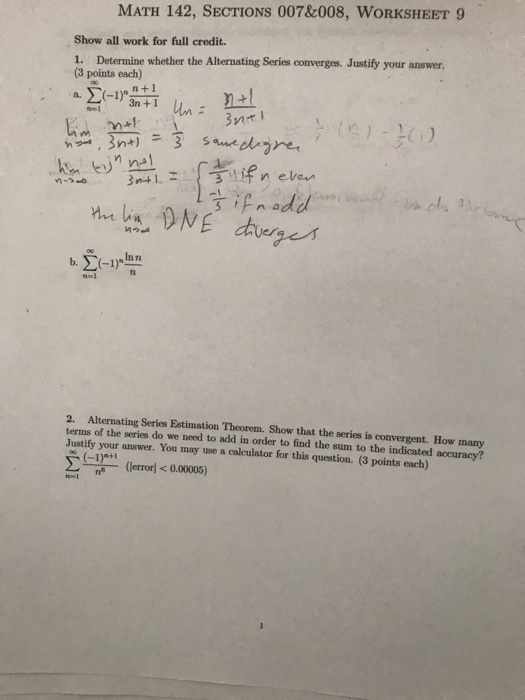 MATH 142, SECTIONS 007&008, WORKSHEET 9
Show all work for full credit.
1. Determine whether the Alternating Series converges. Justify your answer.
(3 points each)
a. ∞ ∑ n=1 (-1)ⁿ (n + 1)/(3n + 1) Un = (n+1)/(3n+1)
lim n→∞ (n+1)/(3n+1) = 1/3 same degree
lim n→∞ (-1)ⁿ (n+1)/(3n+1) = { 1/3 if n even
-1/3 if n odd
the lim n→∞ DNE diverges
b. ∞ ∑ n=1 (-1)ⁿ ln n/n
2. Alternating Series Estimation Theorem. Show that the series is convergent. How many
terms of the series do we need to add in order to find the sum to the indicated accuracy?
Justify your answer. You may use a calculator for this question. (3 points each)
∞ ∑ n=1 (-1)ⁿ⁺¹/n⁶ (|error| < 0.00005)
1